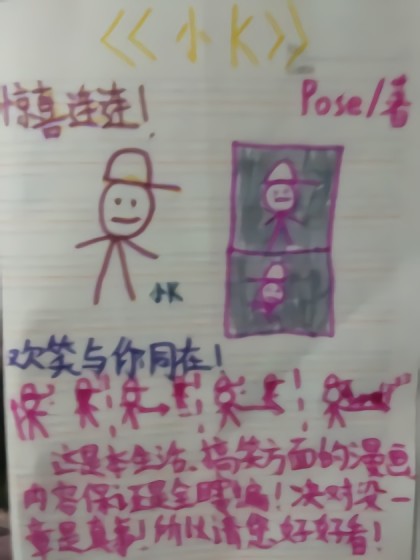 《小K》
惊喜连连!
Pose/著
小K
欢笑与你同在!
这是本生活、搞笑方面的漫画
内容保证是全瞎编!决对没一
章是真事!所以请您好好看!